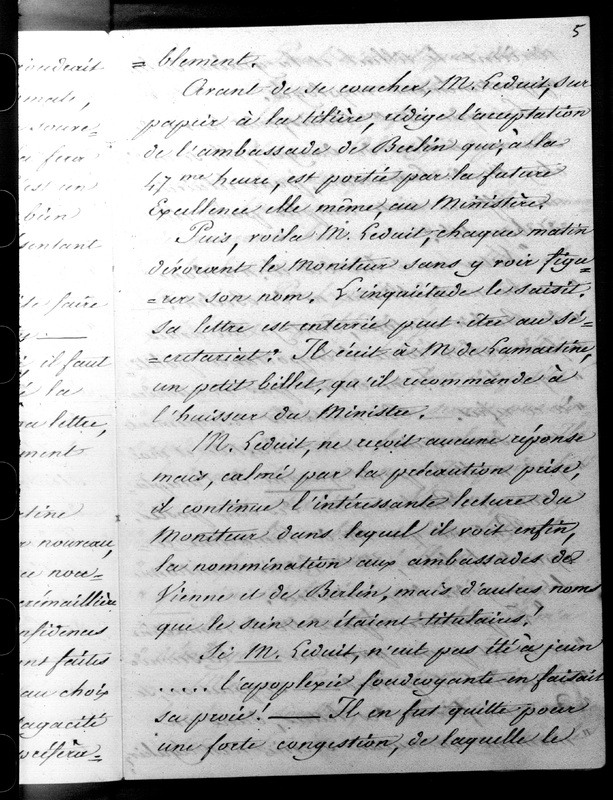 5
= blement.
Avant de se coucher, M. Leduit, sur
papier à la tellière, rédige l'acceptation
de l'ambassade de Berlin qui, à la
47me heure, est portée par la future
Excellence elle même, au Ministère.
Puis, voila M. Leduit, chaque matin
dévorant le Moniteur sans y voir figu=
=rer son nom. L'inquiétude le saisit.
sa lettre est enterrée peut être au sé=
=cretariat? Il écrit à M de Lamartine,
un petit billet, qu'il recommande à
l'huissier du Ministre.
M. Leduit, ne reçoit aucune réponse
mais, calmé par la précaution prise,
il continue l'intéressante lecture du
Moniteur dans lequel il voit enfin,
la nommination aux ambassades de
Vienne et de Berlin, mais d'autres noms
que le sien en étaient titulaires!
Si M. Leduit, n'eut pas été à jeun
..... l'apoplexie foudroyante en faisait
sa proie! — Il en fut quitte pour
une forte congestion, de laquelle le
voudrait
male,
à sa fera
est un
bien
sentant
de faire
il faut
é la
sa lettre,
ment
tine
nouveau,
ce nou=
crémaillière
nfidences
nt faites
au choix
sagacité